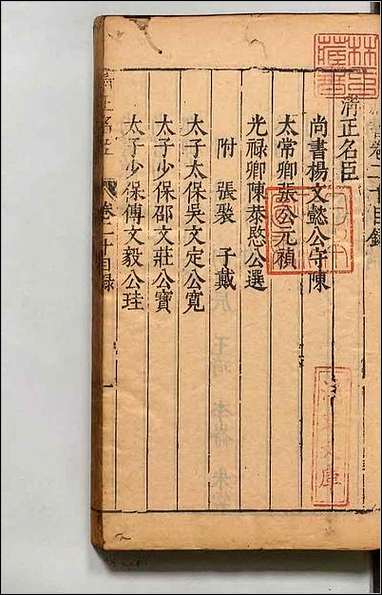 卷二十目錄
清正名臣
尚書楊文懿公守陳
太常卿張公元禎
光祿卿陳恭愍公選
附 張褧 子戴
太子太保吳文定公寬
太子少保邵文莊公寶
太子少保傅文毅公珪
卷二十目錄